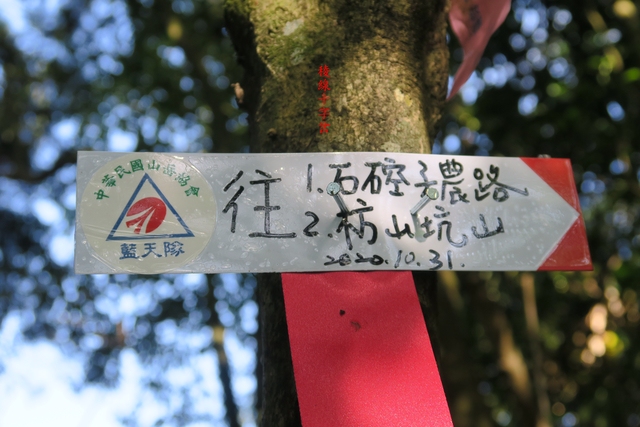 中華民國山岳協會
藍天隊
往
1.石硿子農路
2.枋山坑山
2020.10.31.